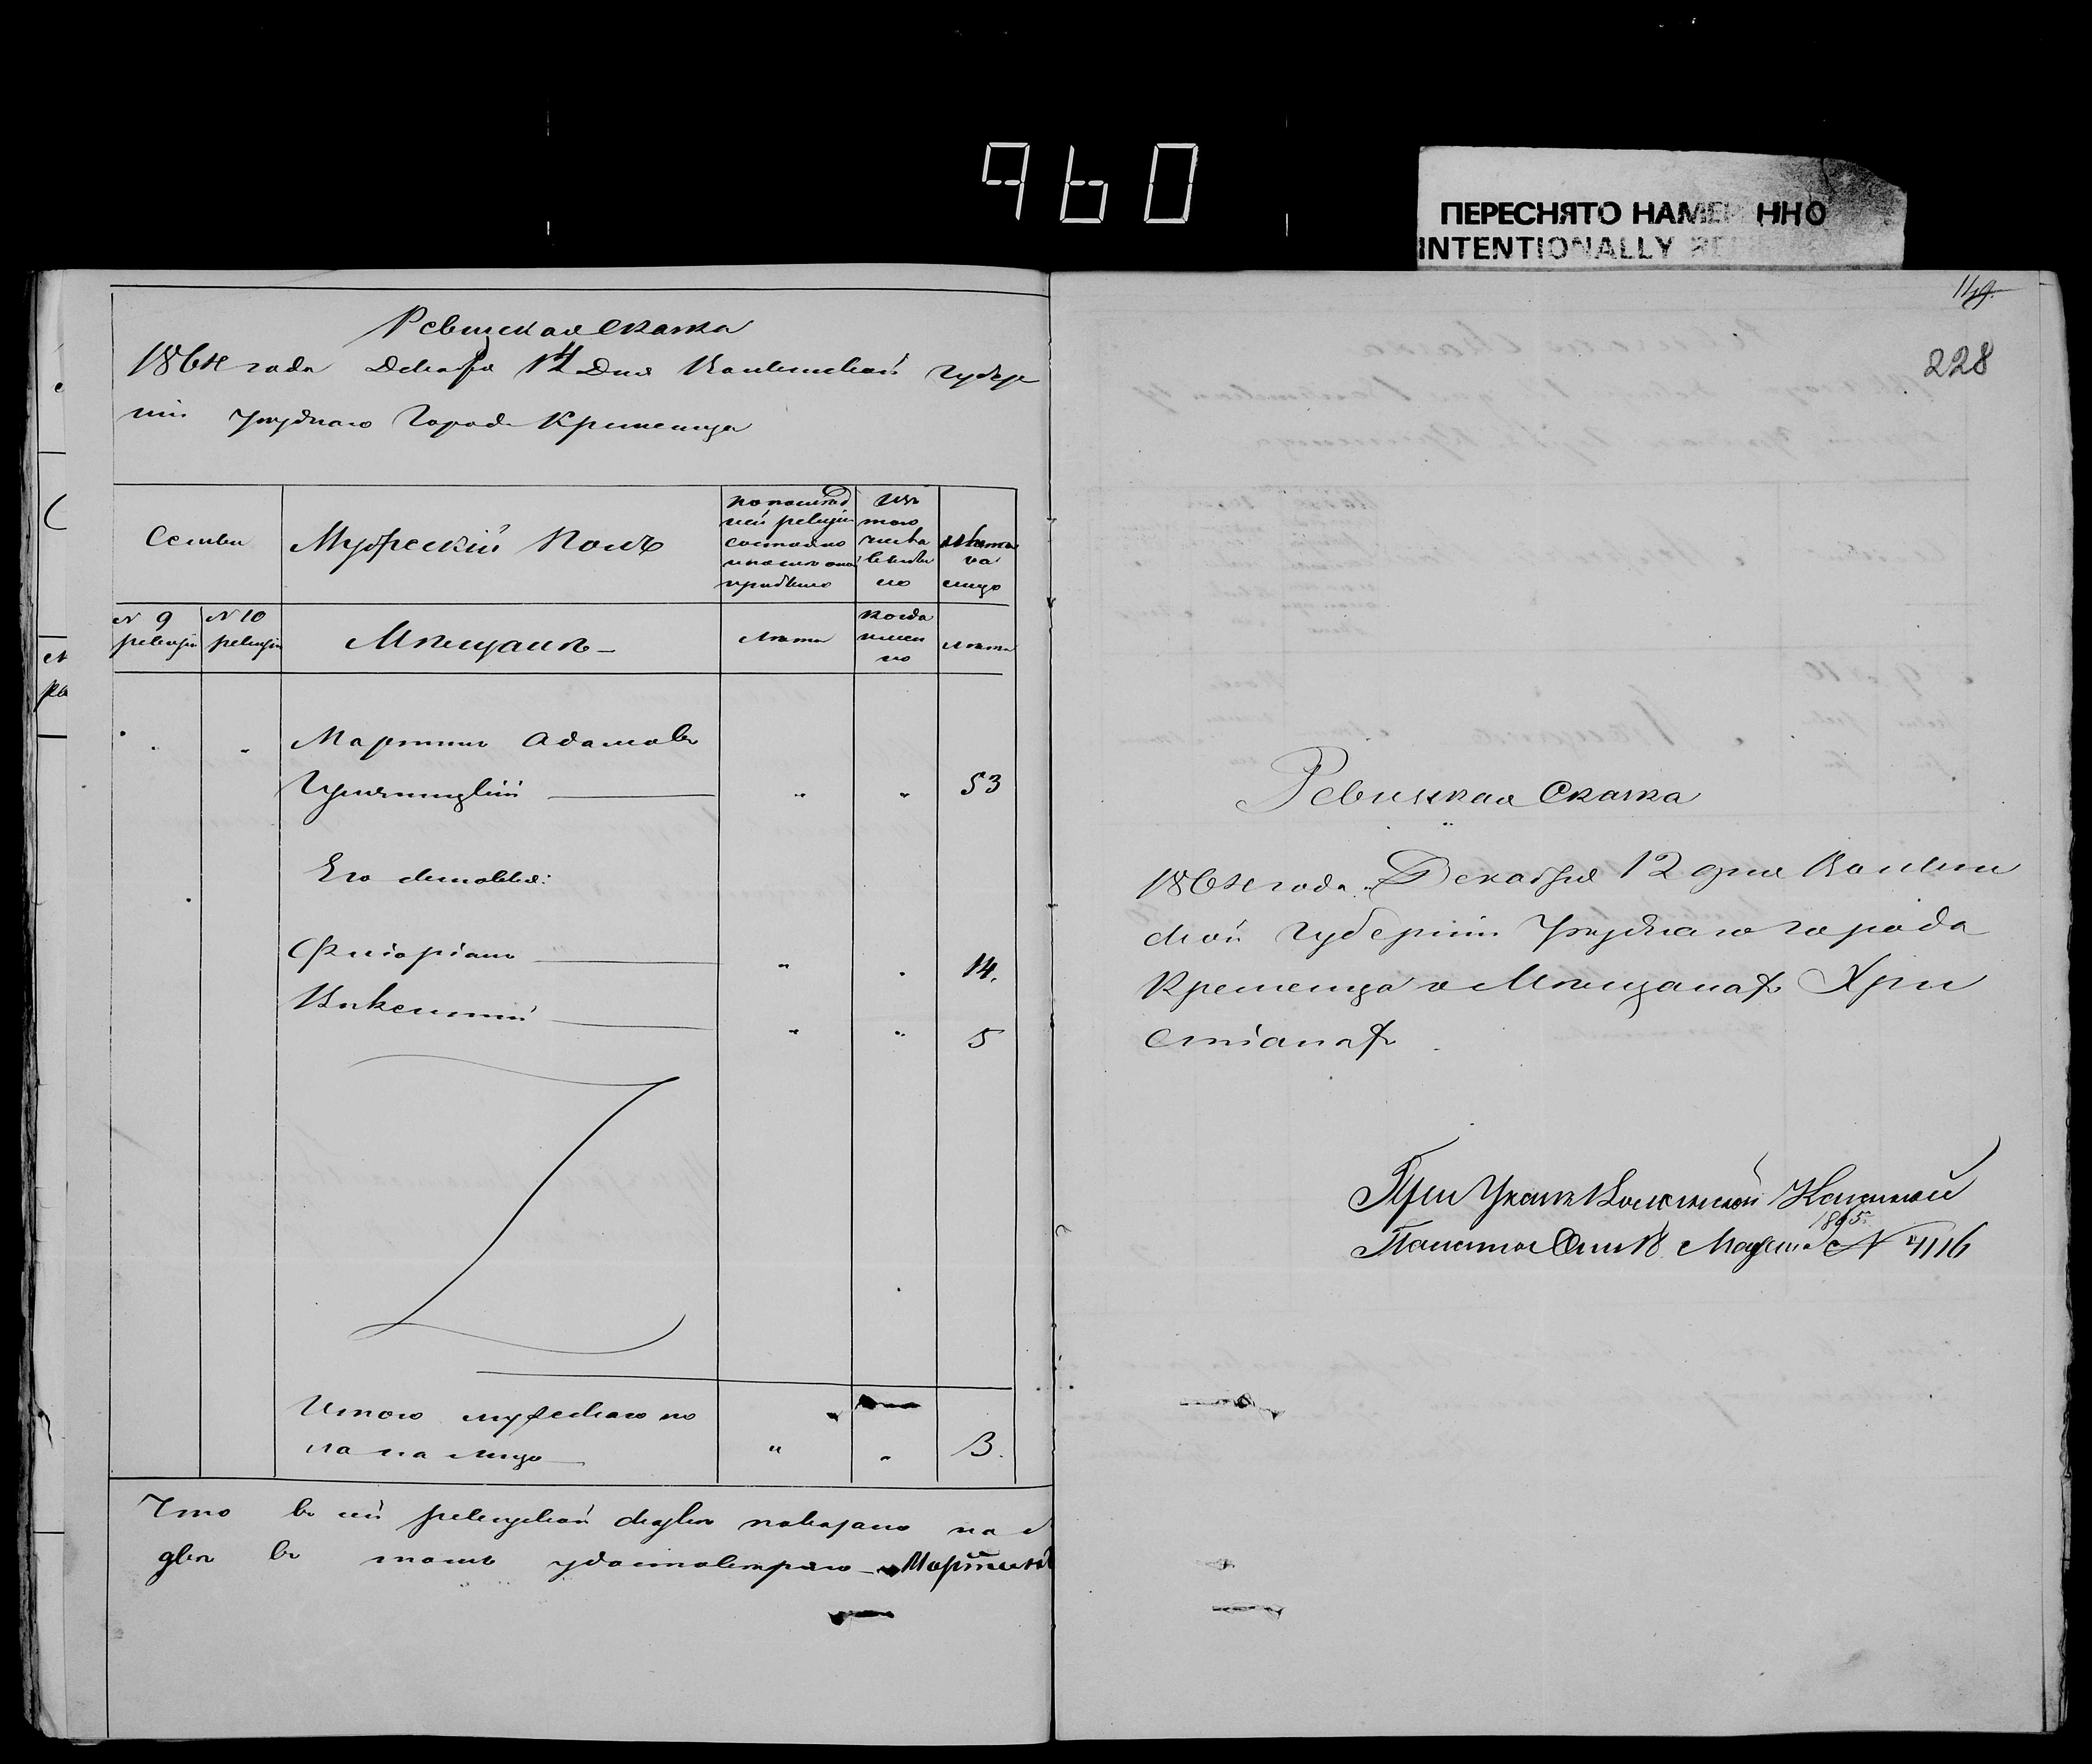 960
ПЕРЕСНЯТО НАМЕ ННО
INTENTIONALLY
Ревизская Сказка
1864 года Декабря 14 Дня Волынской Губер
ніи Уѣзднаго Города Кременца
Семьи
Мужескій Полъ
По послѣд
ней ревизіи
состояло
и послѣ оной
прибыло
Изъ
того
числа
выбы
ло
Нынѣ
на
лицо
№ 9
ревизіи
№ 10
ревизіи
Мѣщанъ
Лѣта
Когда
имен
но
Лѣта
Мартинъ Адамовъ
53
Его сыновья:
Флоріанъ
14.
Викентій
5
Итого мужескаго по
ла на лицо
3.
Что въ сей ревизской сказкѣ показано на
въ томъ удостовѣряю
119
228
Ревизская Сказка
1864 года Декабря 12 дня Волын
ской Губерніи Уѣзднаго города
Кременца о Мѣщанахъ Хри
стіанахъ
При Указѣ Волынской Казенной
Палаты отъ 18 Марта 1865 № 4116